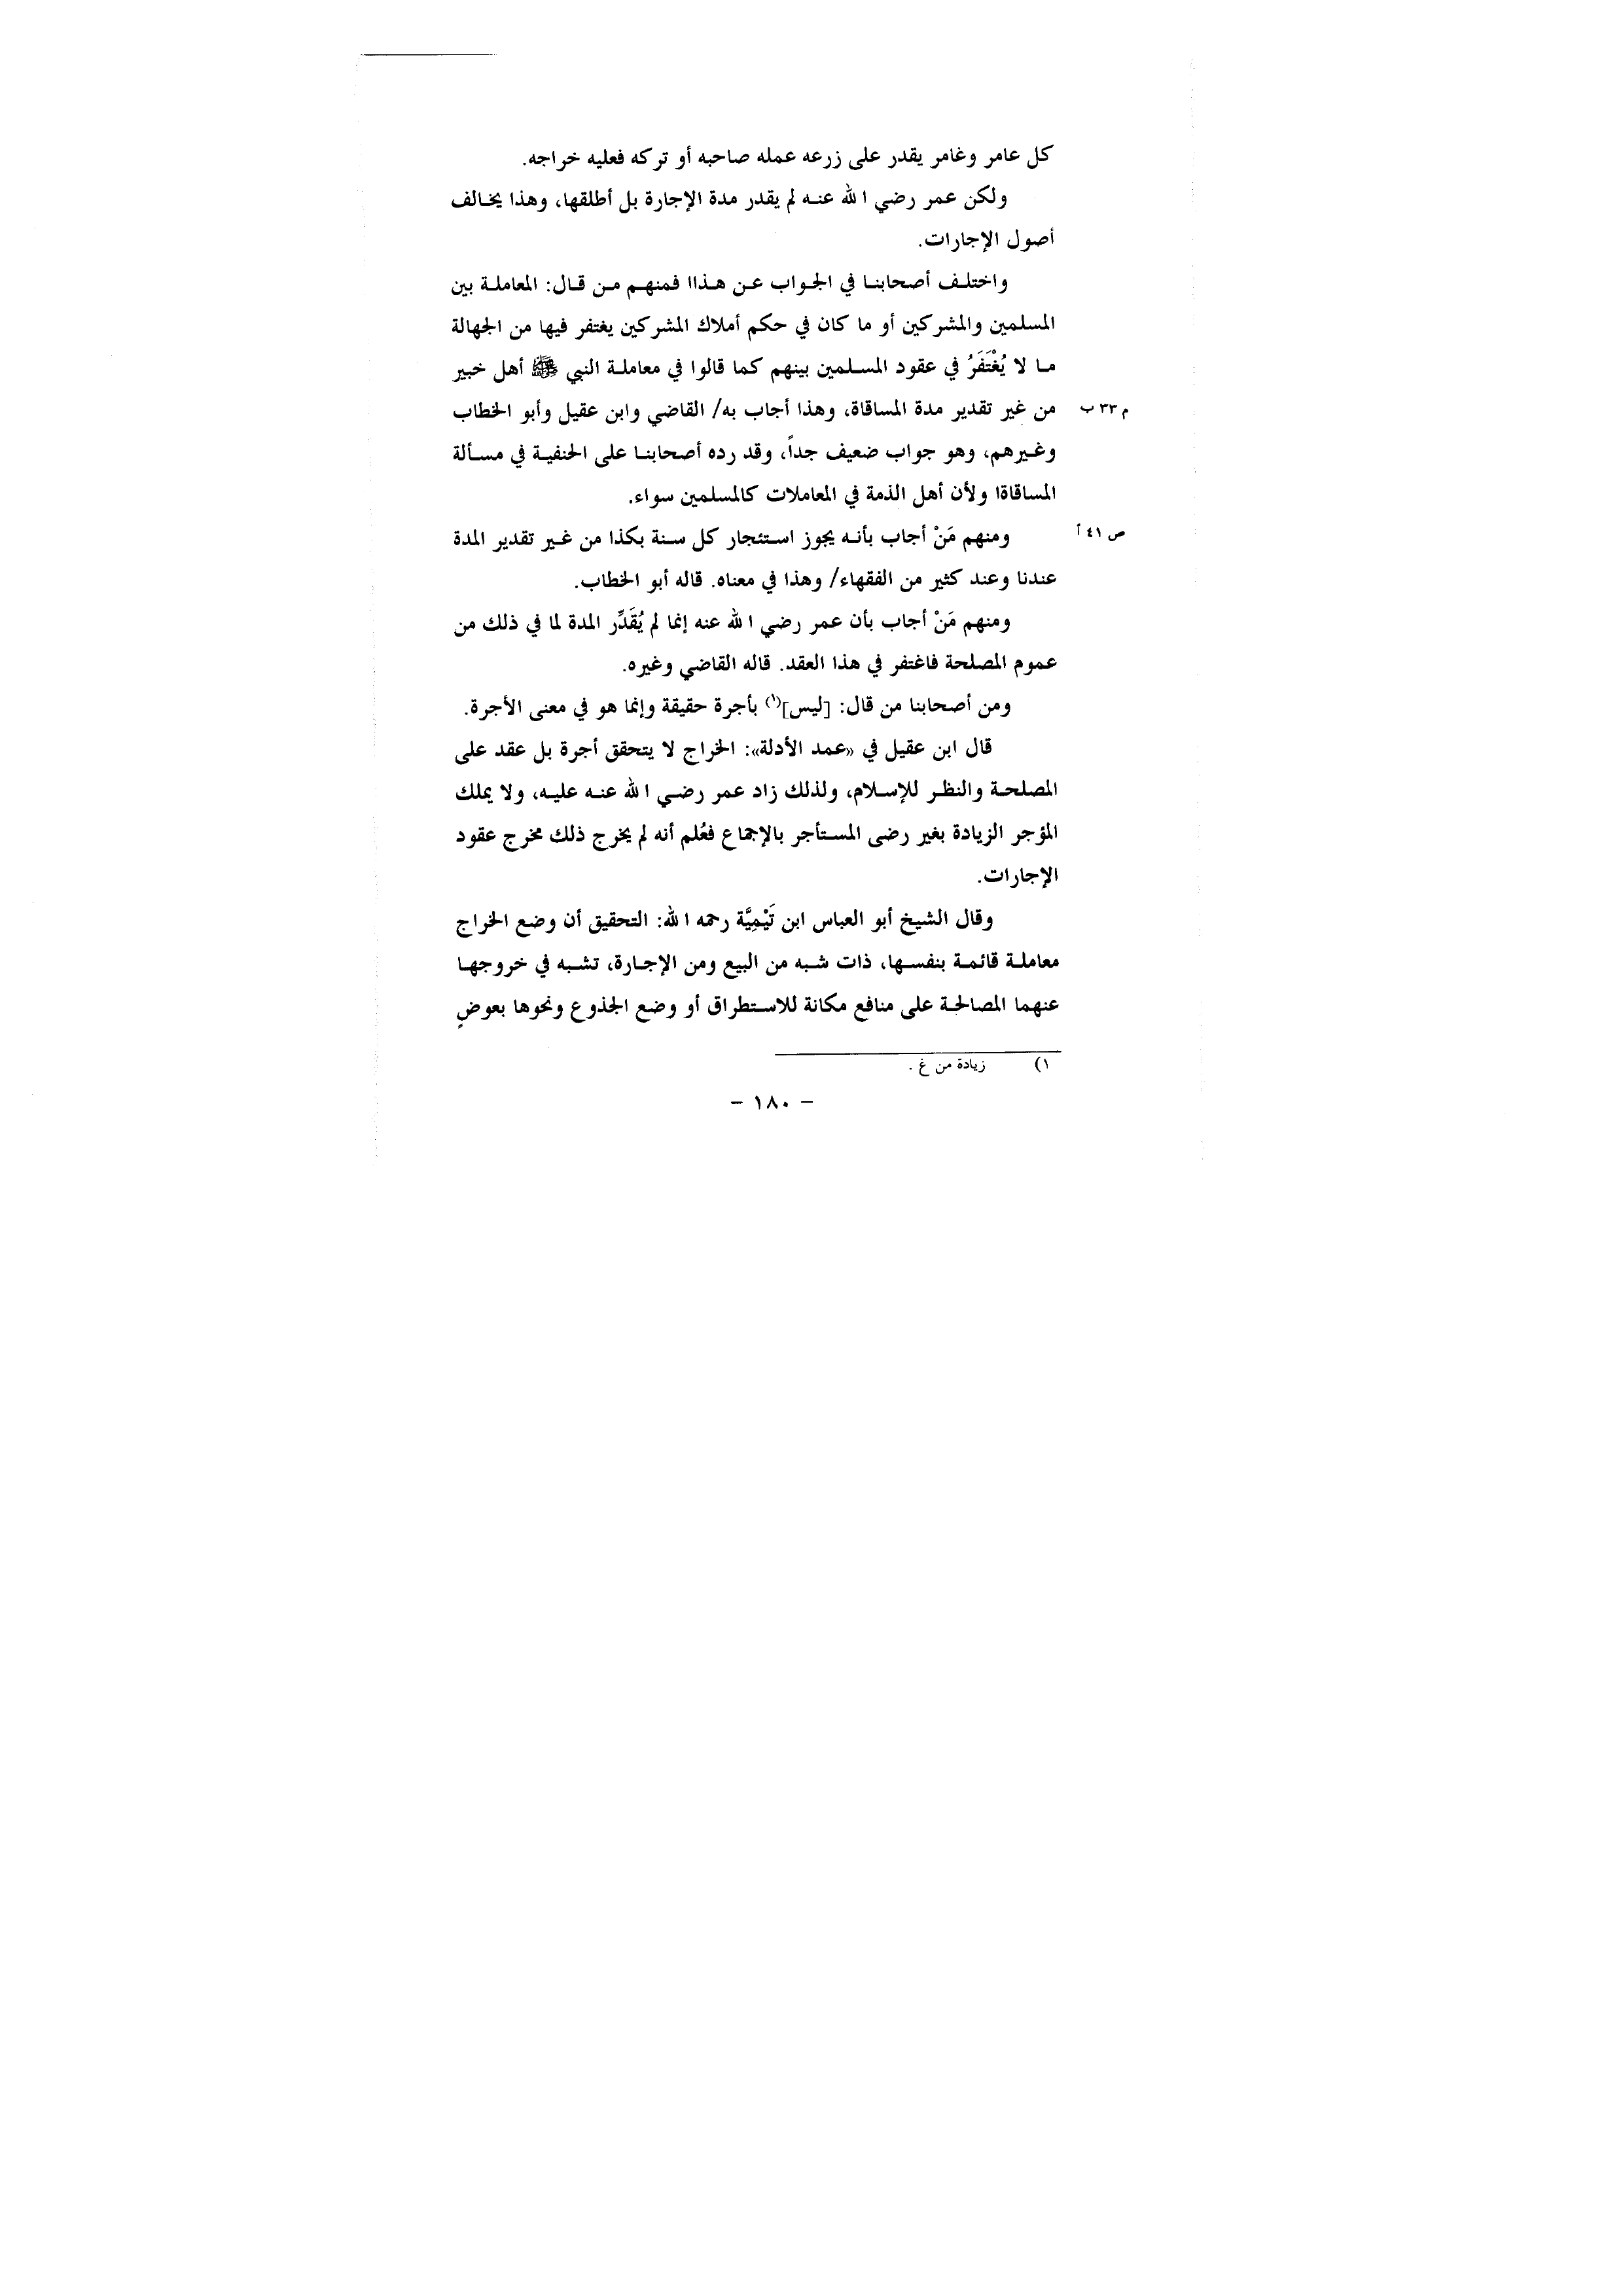 كل عامر وغامر يقدر على زرعه عمله صاحبه أو تركه فعليه خراجه.
ولكن عمر رضي الله عنه لم يقدر مدة الإجارة بل أطلقها، وهذا يخالف
أصول الإجارات.
واختلف أصحابنا في الجواب عن هذاا فمنهم من قال: المعاملة بين
المسلمين والمشركين أو ما كان في حكم أملاك المشركين يغتفر فيها من الجهالة
ما لا يُغْتَفَرُ في عقود المسلمين بينهم كما قالوا في معاملة النبي ﷺ أهل خبير
من غير تقدير مدة المساقاة، وهذا أجاب به/ القاضي وابن عقيل وأبو الخطاب
م ٣٣ ب
وغيرهم، وهو جواب ضعيف جداً، وقد رده أصحابنا على الحنفية في مسألة
المساقاةا ولأن أهل الذمة في المعاملات كالمسلمين سواء.
ومنهم مَنْ أجاب بأنه يجوز استئجار كل سنة بكذا من غير تقدير المدة
ص ٤١ أ
عندنا وعند كثير من الفقهاء/ وهذا في معناه. قاله أبو الخطاب.
ومنهم مَنْ أجاب بأن عمر رضي الله عنه إنما لم يُقَدِّر المدة لما في ذلك من
عموم المصلحة فاغتفر في هذا العقد. قاله القاضي وغيره.
ومن أصحابنا من قال: [ليس](١) بأجرة حقيقة وإنما هو في معنى الأجرة.
قال ابن عقيل في «عمد الأدلة»: الخراج لا يتحقق أجرة بل عقد على
المصلحة والنظر للإسلام، ولذلك زاد عمر رضي الله عنه عليه، ولا يملك
المؤجر الزيادة بغير رضى المستأجر بالإجماع فعُلم أنه لم يخرج ذلك مخرج عقود
الإجارات.
وقال الشيخ أبو العباس ابن تَيْمِيَّة رحمه الله: التحقيق أن وضع الخراج
معاملة قائمة بنفسها، ذات شبه من البيع ومن الإجارة، تشبه في خروجها
عنهما المصالحة على منافع مكانة للاستطراق أو وضع الجذوع ونحوها بعوضٍ
١) زيادة من غ .
– ١٨٠ –